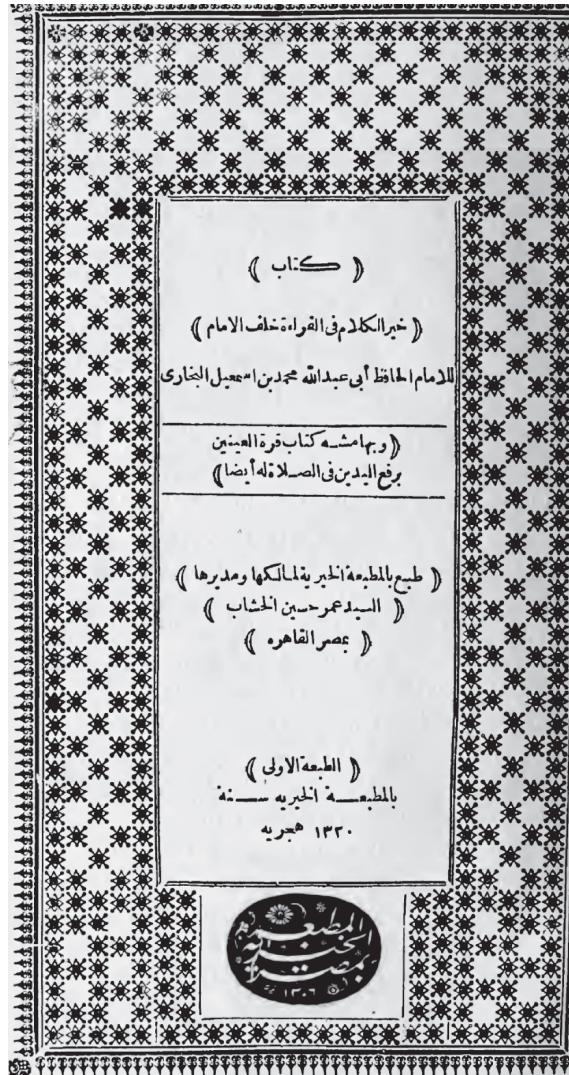 ﴿ كتاب ﴾
﴿ خير الكلام فى القراءة خلف الامام ﴾
للامام الحافظ أبى عبدالله محمد بن اسمعيل البخارى
﴿ وبهامشه كتاب قرة العينين
برفع اليدين فى الصلاة له أيضا ﴾
﴿ طبع بالمطبعة الخيرية لمالكها ومديرها ﴾
﴿ السيد عمر حسين الخشاب ﴾
﴿ بمصر القاهره ﴾
﴿ الطبعة الاولى ﴾
بالمطبعة الخيريه سنة
١٣٢٠ هجريه
المطبعة
الخيرية
بمصر
١٣٠٦